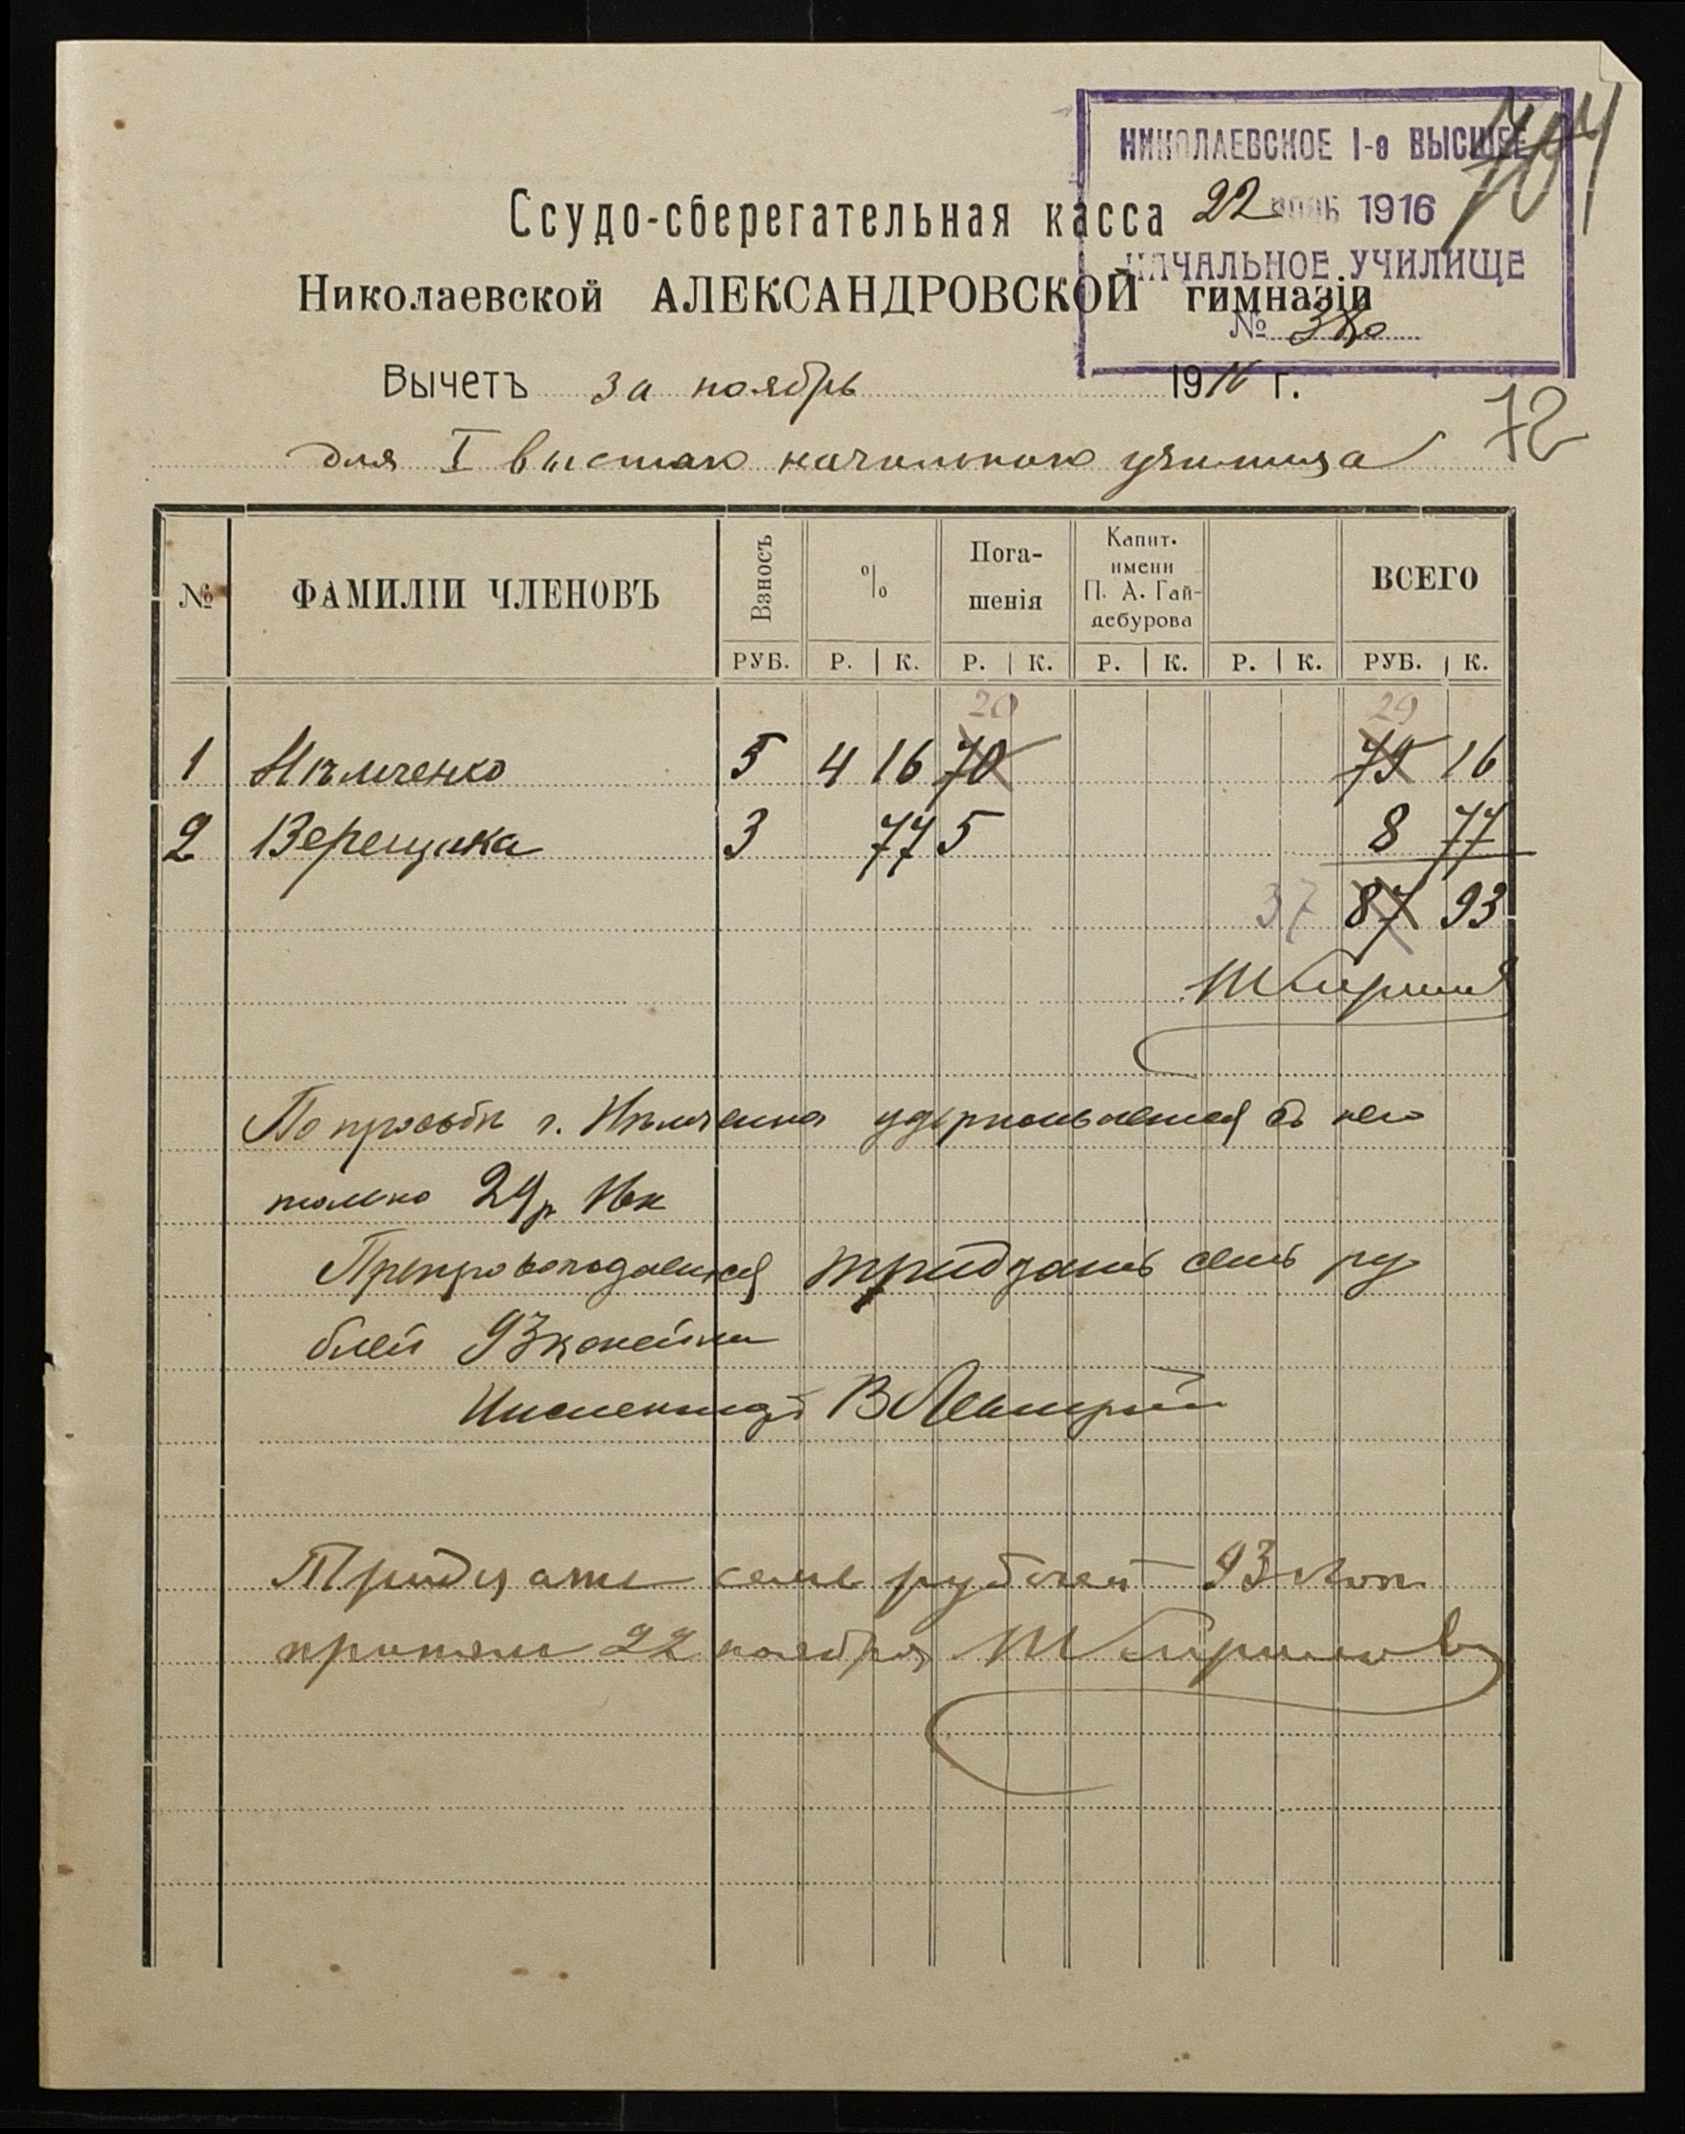 704
НИКОЛАЕВСКОЕ I-е ВЫСШЕЕ
22 НОЯБ 1916
НАЧАЛЬНОЕ УЧИЛИЩЕ
№
Ссудо-сберегательная касса
Николаевской АЛЕКСАНДРОВСКОЙ гимназіи
Вычетъ за ноябрь 1916 г.
72
для I высшаго начальнаго училища
№ ФАМИЛІИ ЧЛЕНОВЪ Взносъ % Пога-шенія Капит. имени П. А. Гай-дебурова ВСЕГО
РУБ. Р. К. Р. К. Р. К. Р. К. РУБ. К.
20 29
1 Нѣмченко 5 4 16 70 79 16
2 Верещака 3 77 5 8 77
37 87 93
По просьбѣ г. Нѣмченка удерживается съ него
только 29 р 16 к
Препровождается тридцать семь ру
блей 93 копейки
Письмовод
Тридцать семь рублей 93 коп
принялъ 22 ноября